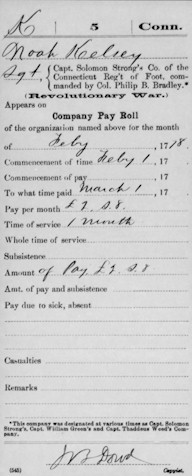 K 5 Conn.
Noah Kelsey
Sgt, Capt. Solomon Strong's Co. of the
Connecticut Reg't of Foot, com-
manded by Col. Philip B. Bradley.*
(Revolutionary War.)
Appears on
Company Pay Roll
of the organization named above for the month
of Feby, 1778.
Commencement of time Feby 1, 17
Commencement of pay, 17
To what time paid March 1, 17
Pay per month £2. S. 8
Time of service 1 month
Whole time of service
Subsistence
Amount of Pay £2. S. 8
Amt. of pay and subsistence
Pay due to sick, absent
Casualties
Remarks
*This company was designated at various times as Capt. Solomon
Strong's, Capt. William Green's and Capt. Thaddeus Weed's Com-
pany.
Dowd
(545) Copyist.